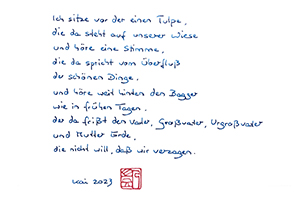 Ich sitze vor der einen Tulpe,
die da steht auf unserer Wiese
und höre eine Stimme,
die da spricht vom Überfluß
der schönen Dinge.
und höre weit hinten den Bagger
wie in frühen Tagen.
der da frißt den Vater, Großvater, Urgroßvater
und Mutter Erde,
die nicht will, daß wir verzagen.
Mai 2023